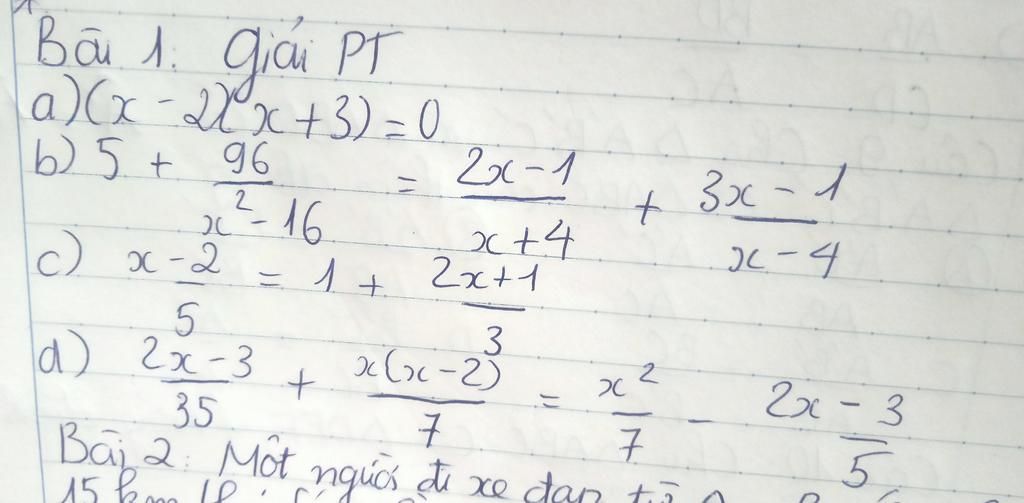 Bài 1: Giải PT
a) (x - 2)(x + 3) = 0
b) 5 + 96/(x² - 16) = (2x - 1)/(x + 4) + (3x - 1)/(x - 4)
c) (x - 2)/5 = 1 + (2x + 1)/3
d) (2x - 3)/35 + x(x - 2)/7 = x²/7 - (2x - 3)/5
Bài 2: Một người đi xe đạp từ
15 km